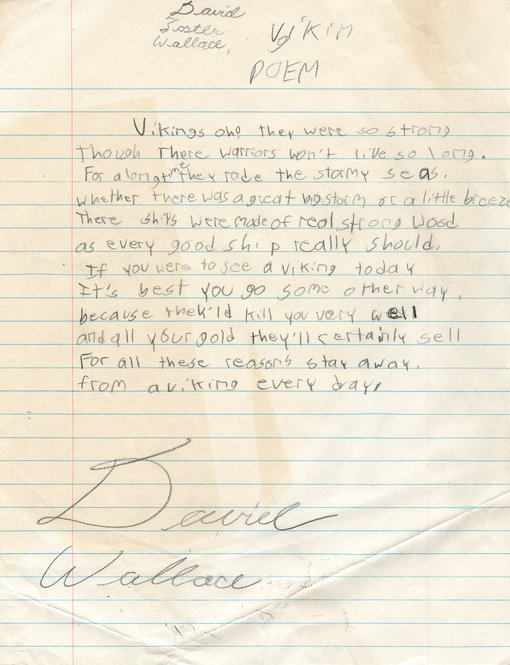 David
Foster
Wallace,
Viking
POEM
Vikings oho they were so strong
Though There warriors won't live so long.
For a long time they rode the stormy seas.
whether there was a great big storm or a little breeze
There ships were made of real strong wood
as every good ship really should.
If you were to see a viking today
It's best you go some other way.
because they'ld kill you very well
and all your gold they'll certainly sell
For all these reasons stay away.
from a viking every day.
David
Wallace